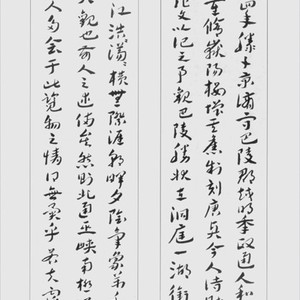 四年滕子京謫守巴陵郡越明年政通人和
重修嶽陽樓增其舊制刻唐賢今人詩
作文以記之予觀巴陵勝狀在洞庭一湖銜
江浩浩湯湯橫無際涯朝暉夕陰氣象萬千
大觀也前人之述備矣然則北通巫峽南極
人多會于此覽物之情得無異乎若夫